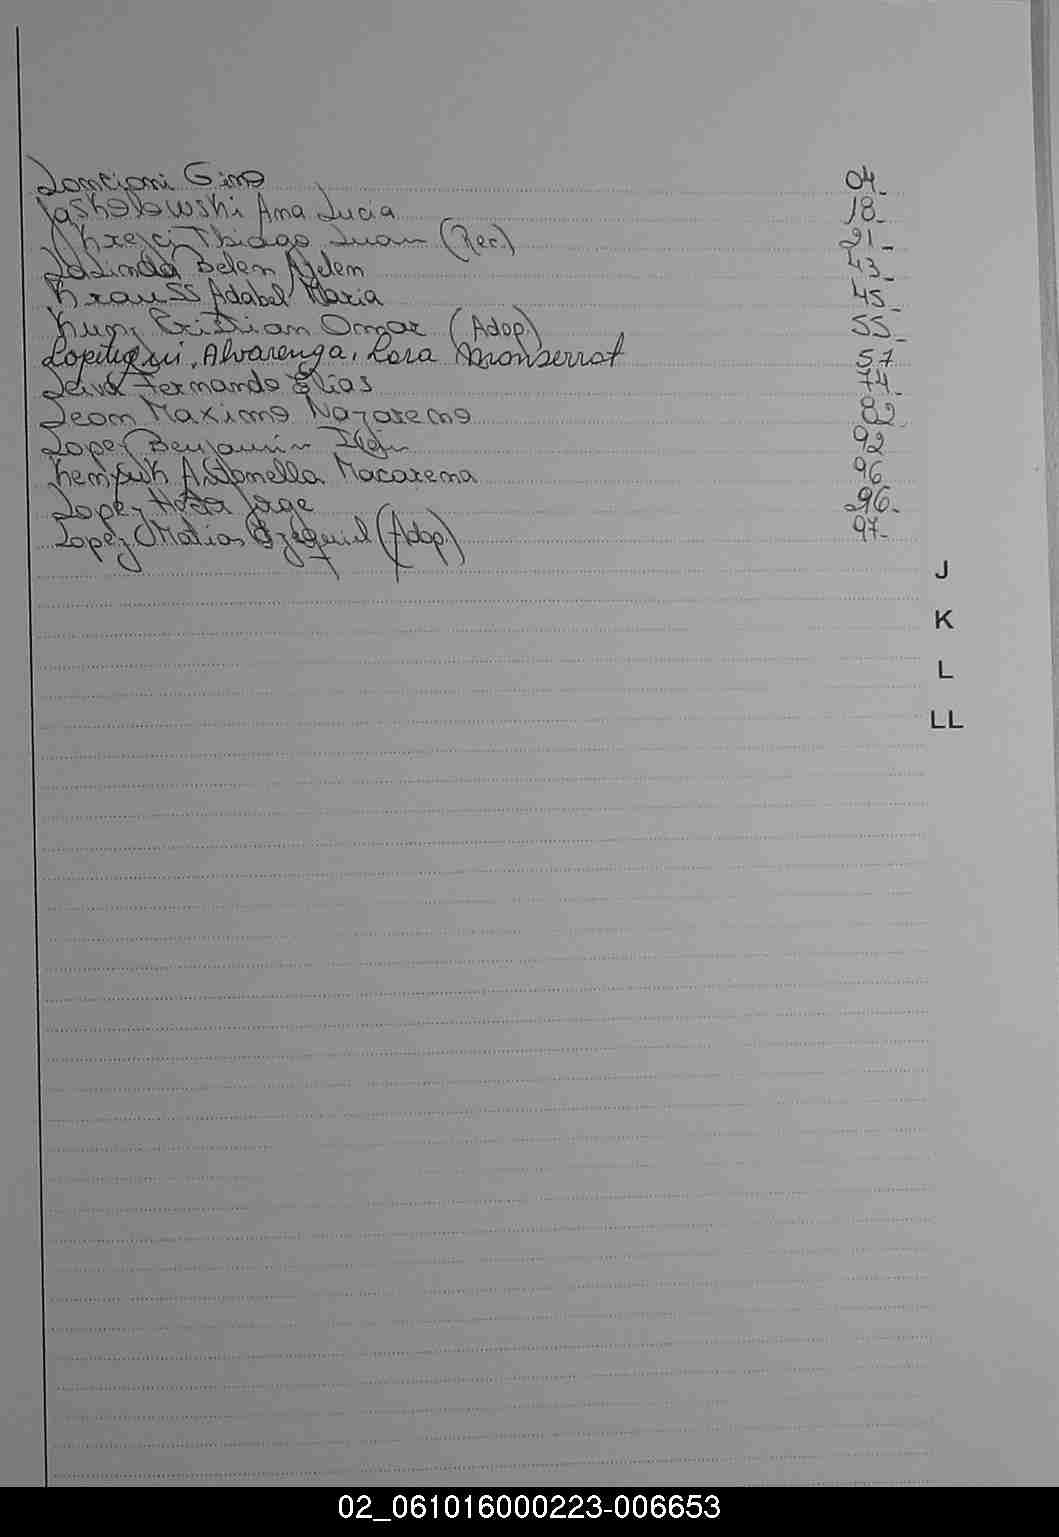 Lancioni Gino 04-
Jaskolowski Ana Lucia 18-
Krejci Thiago Juan (Rec.) 21-
Lalinda Belen Ailen 43-
Krauss Adabel Maria 45-
Cristian Omar (Adop) 55-
Lopetegui, Alvarenga, Lara Monserrat 57
Leiva Fernando Elias 74-
Leon Maximo Nazareno 82-
Lopez Benjamin 92
Antonella Macarena 96
Lopez Jorge 96-
Lopez Matias Ezequiel (Adop) 97-
J
K
L
LL
02_061016000223-006653